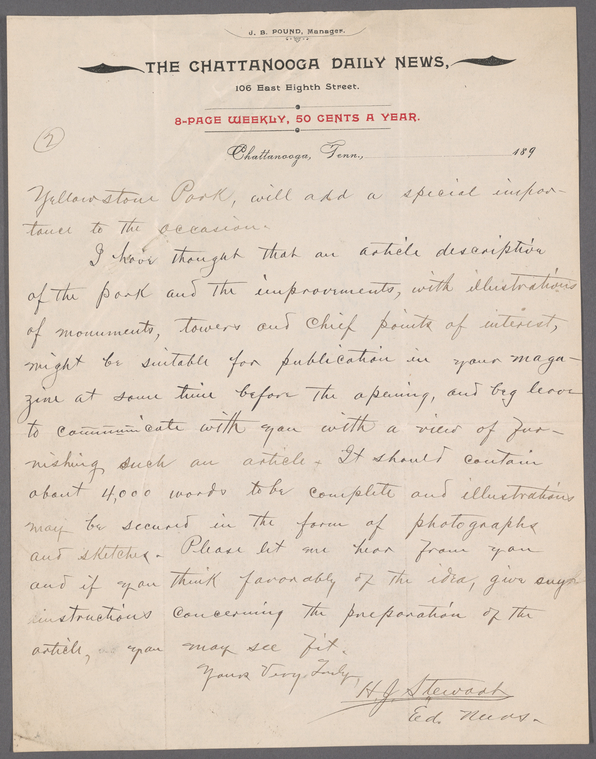 J. B. POUND, Manager.
THE CHATTANOOGA DAILY NEWS,
106 East Eighth Street.
8-PAGE WEEKLY, 50 CENTS A YEAR.
2
Chattanooga, Tenn., 189
Yellowstone Park, will add a special impor-
tance to the occasion.
I have thought that an article descriptive
of the park and the improvements, with illustrations
of monuments, towers and chief points of interest,
might be suitable for publication in your maga-
zine at some time before the opening, and beg leave
to communicate with you with a view of fur-
nishing such an article. It should contain
about 4,000 words to be complete and illustrations
may be secured in the form of photographs
and sketches. Please let me hear from you
and if you think favorably of the idea, give
instructions concerning the preparation of the
article, you may see fit.
Yours Very Truly,
H. J. Stewart
Ed. News.